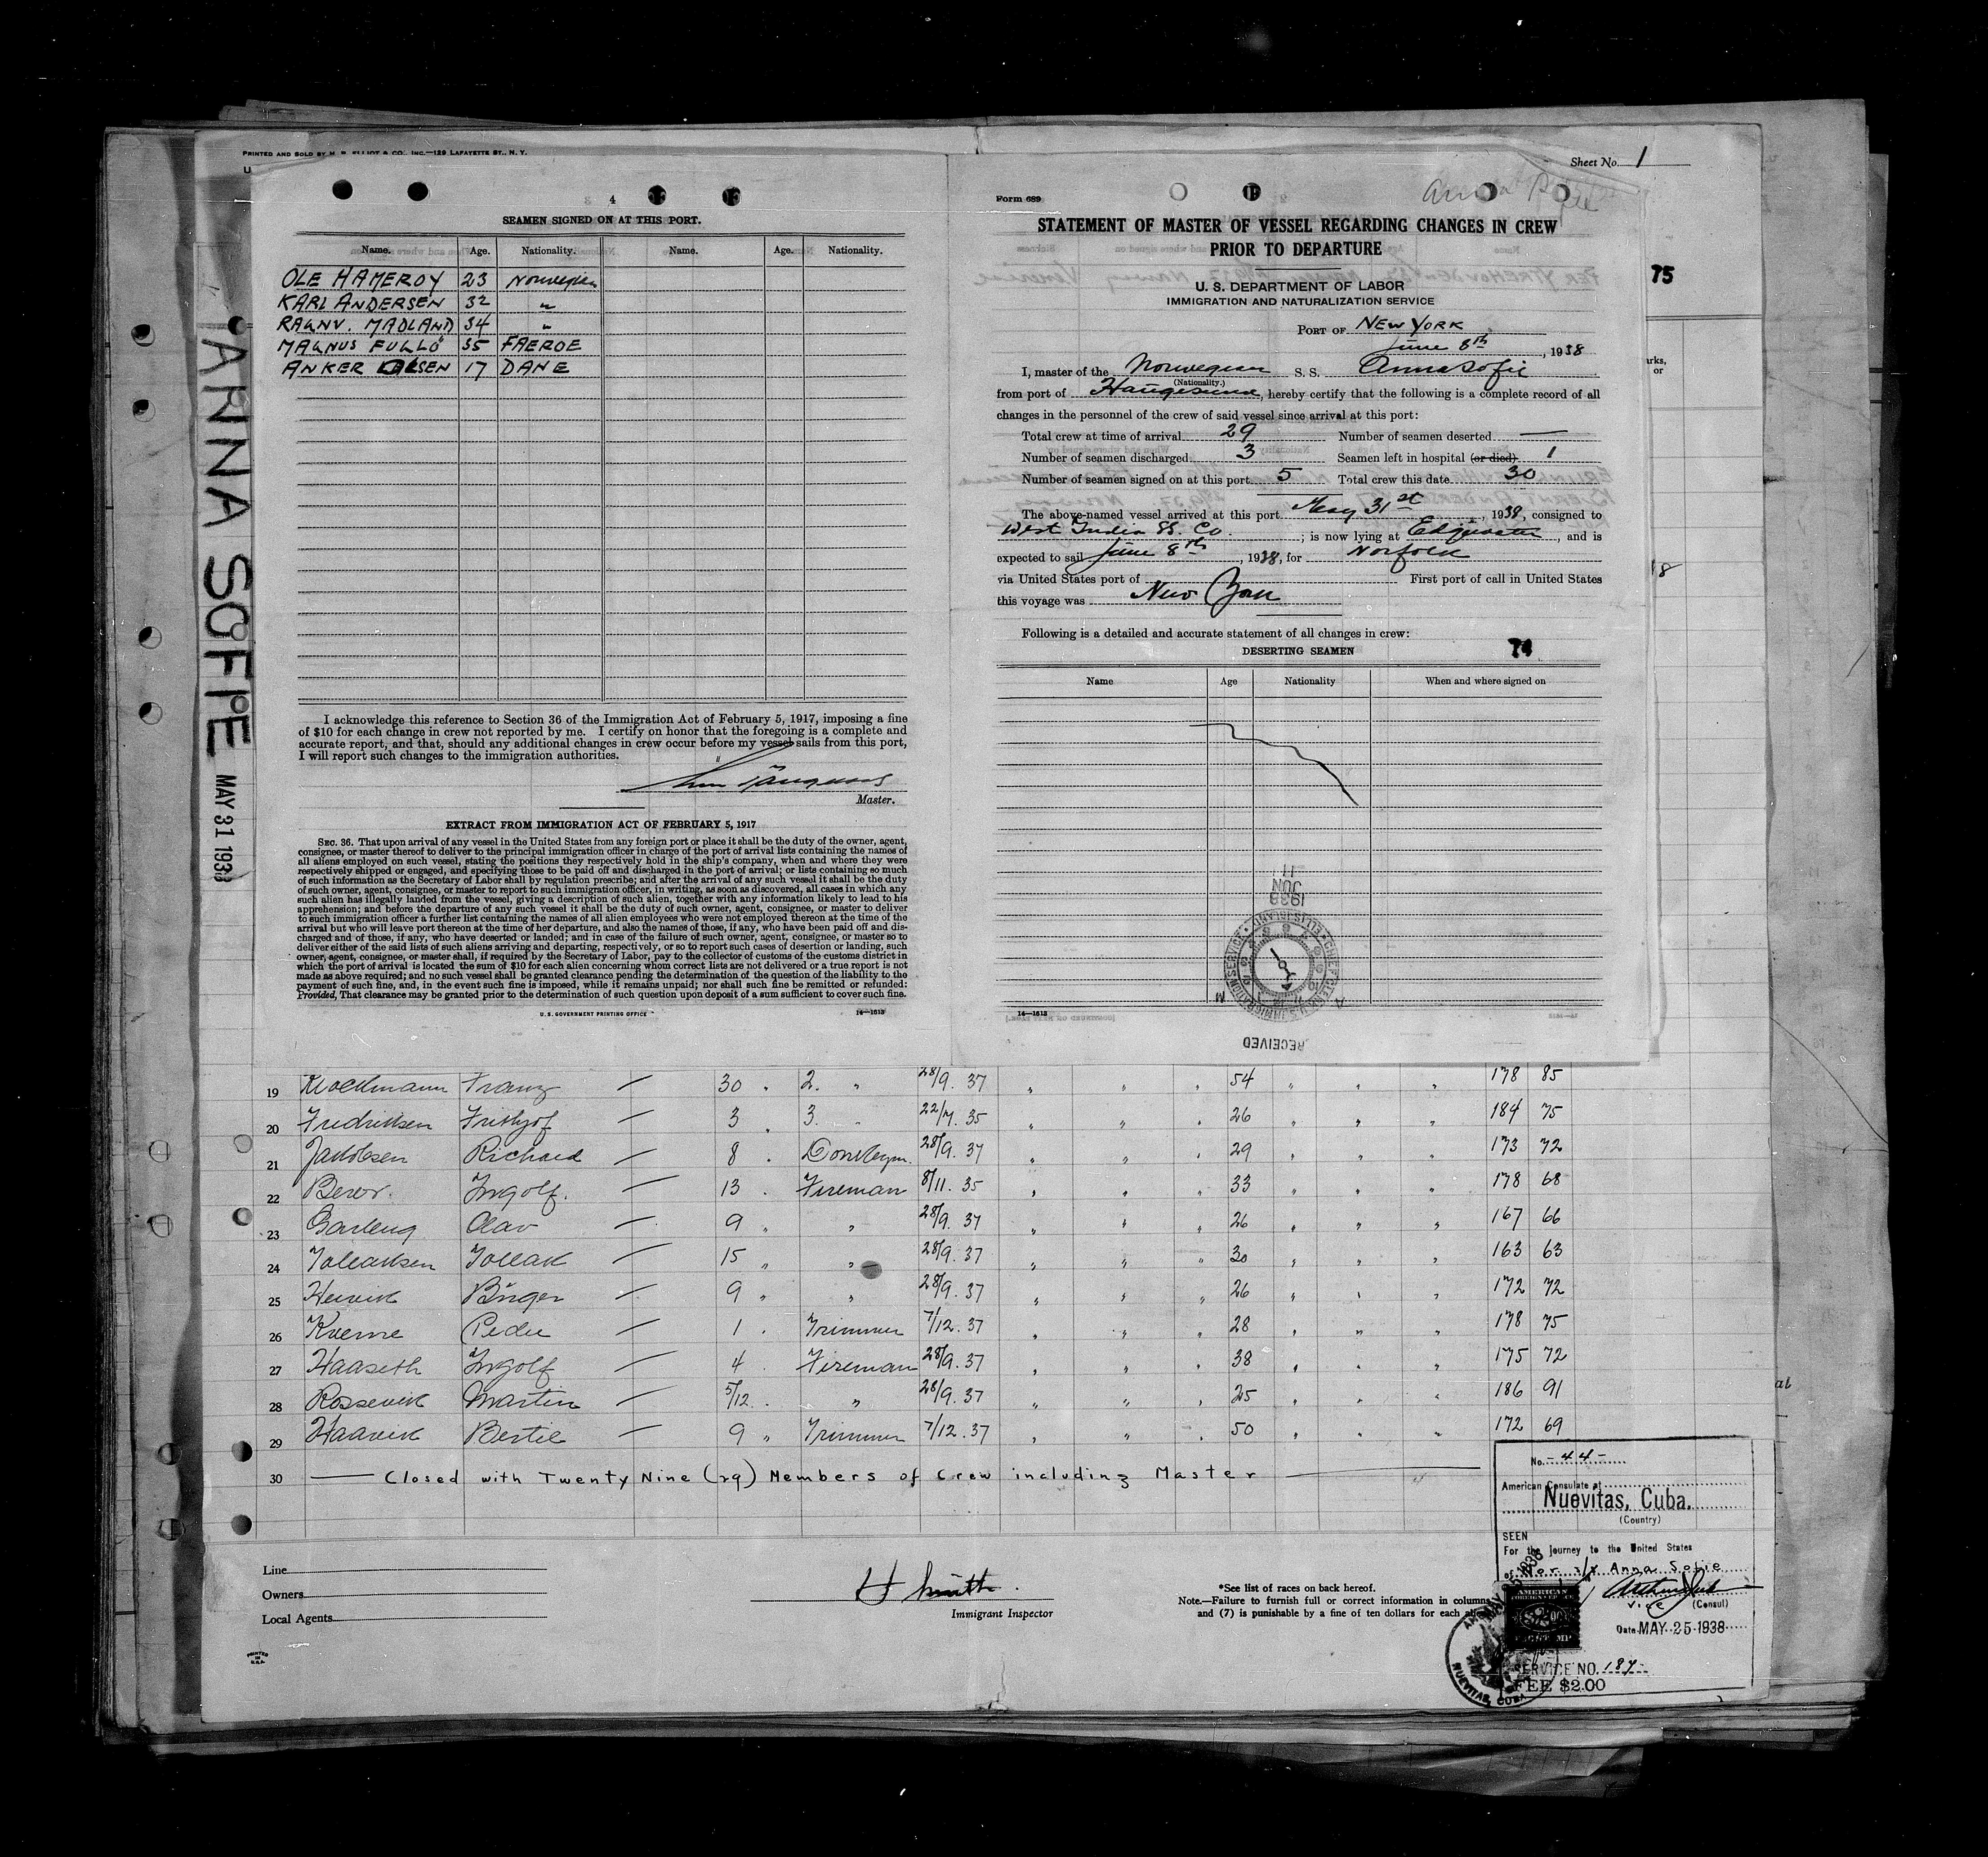 PRINTED AND SOLD BY M. R. ELLIOT & CO., INC.—129 LAFAYETTE ST., N. Y.
U
Sheet No. 1
ANNA SOFIE
MAY 31 1938
4
SEAMEN SIGNED ON AT THIS PORT.
Name. Age. Nationality. Name. Age. Nationality.
OLE HAMEROY 23 Norwegian
KARL ANDERSEN 32 "
RAGNV. MADLAND 34 "
MAGNUS FUGLO 35 FAEROE
ANKER OLSEN 17 DANE
I acknowledge this reference to Section 36 of the Immigration Act of February 5, 1917, imposing a fine
of $10 for each change in crew not reported by me. I certify on honor that the foregoing is a complete and
accurate report, and that, should any additional changes in crew occur before my vessel sails from this port,
I will report such changes to the immigration authorities.
Master.
EXTRACT FROM IMMIGRATION ACT OF FEBRUARY 5, 1917
SEC. 36. That upon arrival of any vessel in the United States from any foreign port or place it shall be the duty of the owner, agent,
consignee, or master thereof to deliver to the principal immigration officer in charge of the port of arrival lists containing the names of
all aliens employed on such vessel, stating the positions they respectively hold in the ship's company, when and where they were
respectively shipped or engaged, and specifying those to be paid off and discharged in the port of arrival; or lists containing so much
of such information as the Secretary of Labor shall by regulation prescribe; and after the arrival of any such vessel it shall be the duty
of such owner, agent, consignee, or master to report to such immigration officer, in writing, as soon as discovered, all cases in which any
such alien has illegally landed from the vessel, giving a description of such alien, together with any information likely to lead to his
apprehension; and before the departure of any such vessel it shall be the duty of such owner, agent, consignee, or master to deliver
to such immigration officer a further list containing the names of all alien employees who were not employed thereon at the time of the
arrival but who will leave port thereon at the time of her departure, and also the names of those, if any, who have been paid off and dis-
charged and of those, if any, who have deserted or landed; and in case of the failure of such owner, agent, consignee, or master so to
deliver either of the said lists of such aliens arriving and departing, respectively, or so to report such cases of desertion or landing, such
owner, agent, consignee, or master shall, if required by the Secretary of Labor, pay to the collector of customs of the customs district in
which the port of arrival is located the sum of $10 for each alien concerning whom correct lists are not delivered or a true report is not
made as above required; and no such vessel shall be granted clearance pending the determination of the question of the liability to the
payment of such fine, and, in the event such fine is imposed, while it remains unpaid; nor shall such fine be remitted or refunded:
Provided, That clearance may be granted prior to the determination of such question upon deposit of a sum sufficient to cover such fine.
U.S. GOVERNMENT PRINTING OFFICE 14—1613
Form 689
STATEMENT OF MASTER OF VESSEL REGARDING CHANGES IN CREW
PRIOR TO DEPARTURE
75
U. S. DEPARTMENT OF LABOR
IMMIGRATION AND NATURALIZATION SERVICE
PORT OF NEW YORK
June 8th, 1938
I, master of the Norwegian S. S. Anna Sofie
(Nationality.)
from port of Haugesund, hereby certify that the following is a complete record of all
changes in the personnel of the crew of said vessel since arrival at this port:
Total crew at time of arrival 29 Number of seamen deserted —
Number of seamen discharged 3 Seamen left in hospital (or died) 1
Number of seamen signed on at this port 5 Total crew this date 30
The above-named vessel arrived at this port May 31st, 1938, consigned to
West India SS. Co.; is now lying at Edgewater, and is
expected to sail June 8th, 1938, for Norfolk
via United States port of First port of call in United States
this voyage was New York
Following is a detailed and accurate statement of all changes in crew:
DESERTING SEAMEN 74
Name Age Nationality When and where signed on
1938
JUN
11
CHIEF CLERK U.S. IMMIGRATION SERVICE ELLIS ISLAND
A M
RECEIVED
14—1613
19 Klockmann Franz — 30 " 2. " 28/9. 37 " " " 54 " " " 178 85
20 Fredriksen Frithjof — 3 " 3. " 22/7. 35 " " " 26 " " " 184 75
21 Jakobsen Richard — 8 " Donkeym. 28/9. 37 " " " 29 " " " 173 72
22 Ingolf. — 13 " Fireman 8/11. 35 " " " 33 " " " 178 68
23 Olav — 9 " " 28/9. 37 " " " 26 " " " 167 66
24 Tollaksen Tollak — 15 " " 28/9. 37 " " " 30 " " " 163 63
25 Birger — 9 " " 28/9. 37 " " " 26 " " " 172 72
26 Kverne Peder — 1 " Trimmer 7/12. 37 " " " 28 " " " 178 75
27 Haaseth Ingolf — 4 " Fireman 28/9. 37 " " " 38 " " " 175 72
28 Rossevik Martin — 5/12 " " 28/9. 37 " " " 25 " " " 186 91
29 Haavik Bertil — 9 " Trimmer 7/12. 37 " " " 50 " " " 172 69
30 — Closed with Twenty Nine (29) Members of Crew including Master —
Line
Owners
Local Agents
PRINTED IN U.S.A.
H Smith.
Immigrant Inspector
*See list of races on back hereof.
Note.—Failure to furnish full or correct information in columns
and (7) is punishable by a fine of ten dollars for each
No. -44-
American Consulate at
Nuevitas, Cuba.
(Country)
SEEN
For the journey to the United States
of Nor. s/s Anna Sofie
Vice (Consul)
Date MAY 25 1938
AMERICAN
FOREIGN SERVICE
$2.00
FEE STAMP
NUEVITAS, CUBA
SERVICE NO. 187
FEE $2.00